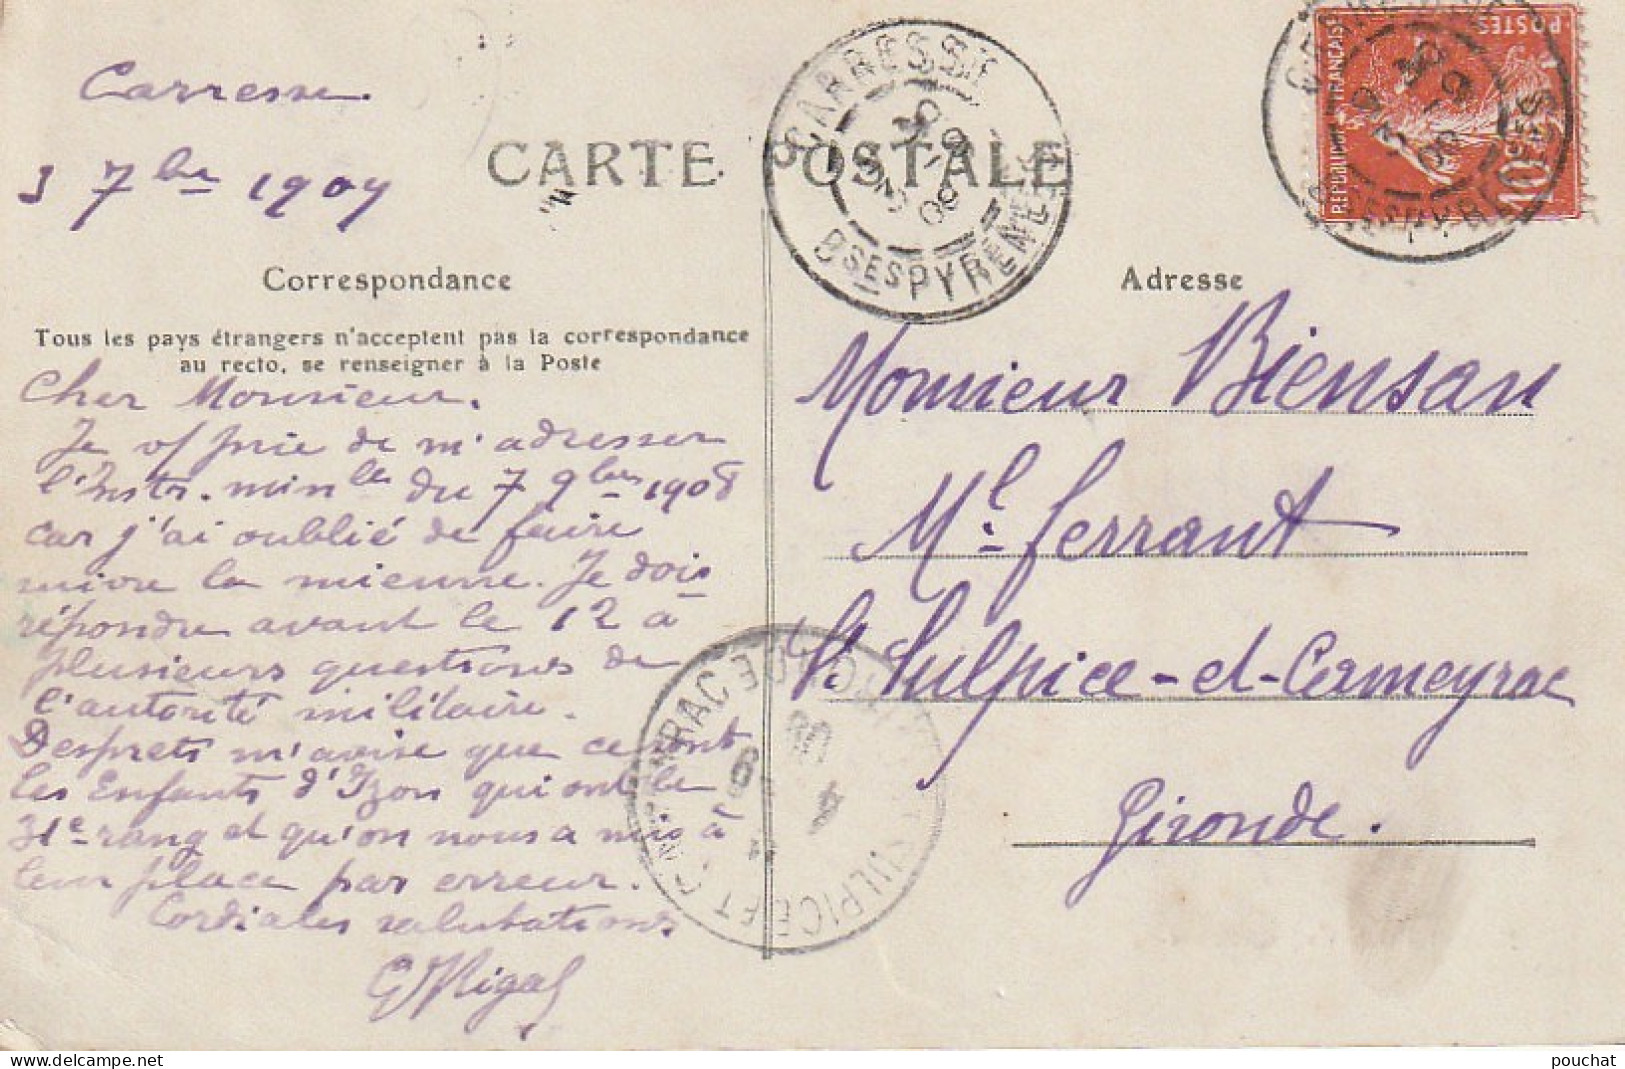 Carresse
3 7bre 1909
CARTE POSTALE
Correspondance
Tous les pays étrangers n'acceptent pas la correspondance
au recto, se renseigner à la Poste
Cher Monsieur.
Je vs prie de m'adresser
l'Instr. minlle du 7 9bre 1908
car j'ai oublié de faire
suivre la mienne. Je dois
répondre avant le 12 à
plusieurs questions de
l'autorité militaire.
Desprets m'avise que ce sont
les Enfants d'Izon qui ont le
31e rang et qu'on nous a mis à
leur place par erreur.
Cordiales salutations
G Rigal
CARRESSE
BSES PYRÉNÉES
REPUBLIQUE FRANÇAISE
POSTES
10
Adresse
Monsieur Biensan
Ml. Ferrant
St Sulpice-et-Cameyrac
Gironde.
pouchat